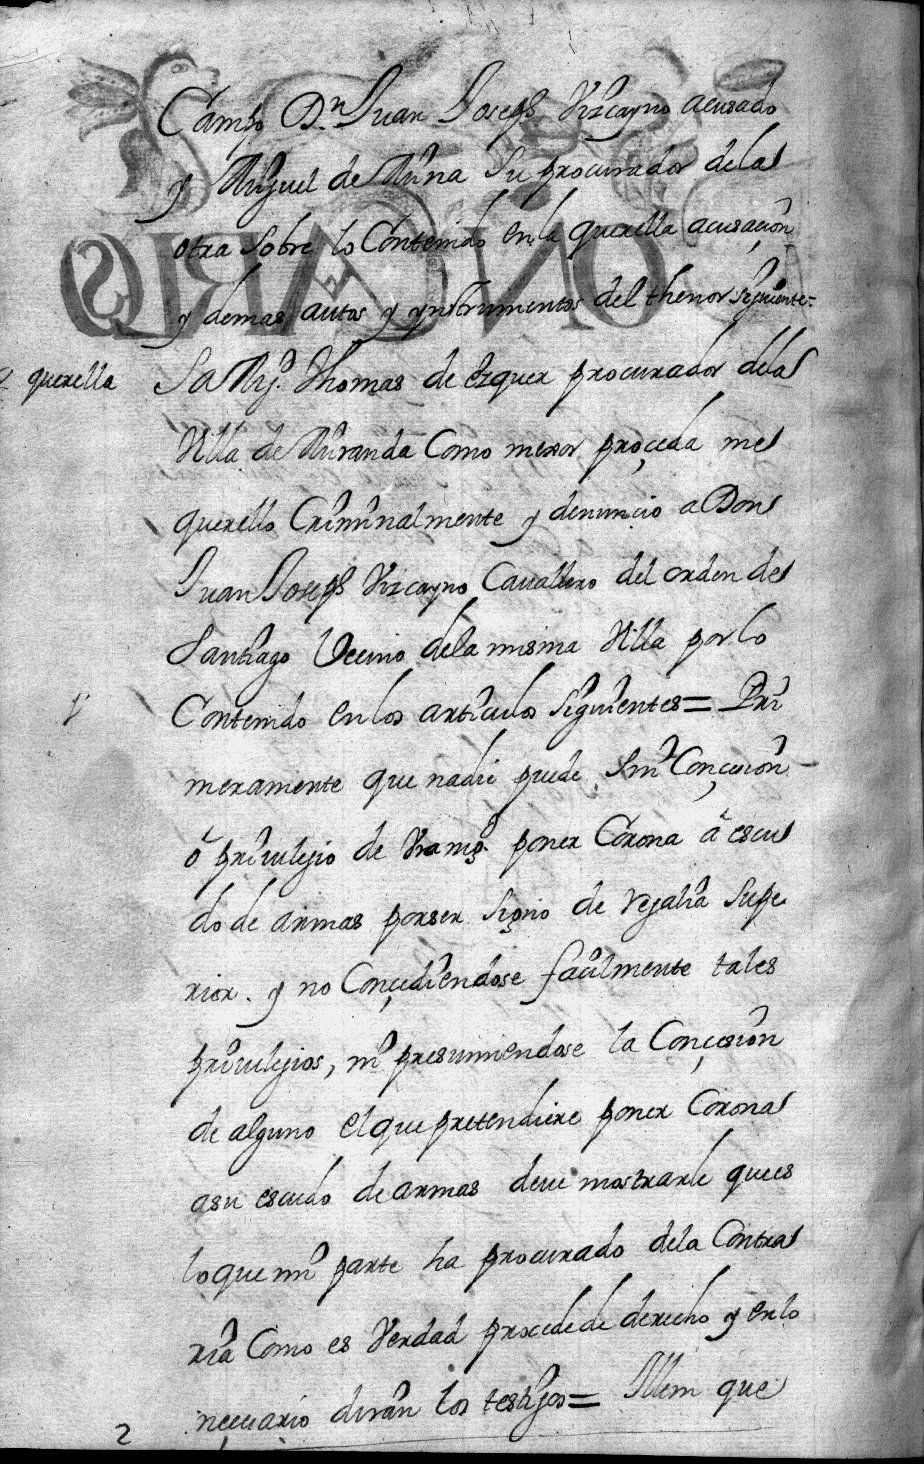 Campo Dn. Juan Joseph Vizcayno acusado
y Miguel de Miina su procurador dela
otra sobre lo Contenido enla querella acusaçion
y demas autos y ynstrumentos del thenor siguiente=
querella Sa Mg.d Thomas de Ezquer procurador dela
Villa de Miranda Como mexor proçeda me
querello Criminalmente y denunçio a Don
Juan Joseph Vizcayno Cauallero del orden de
Santiago Veçino dela misma Villa por lo
1 Contenido en los articulos siguientes= Pri
meramente que nadie puede sin Conçesion
ô priuilejio de Vra mg.d poner Corona â escu
do de armas porser signo de regalia supe
rior. y no Conçediendose façilmente tales
priuilejios, ni presumiendose la Conçesion
de alguno el que pretendiere poner Corona
asu escudo de armas deue mostrarle ques
loque mi parte ha procurado dela Contra
ria Como es Verdad procede de derecho y enlo
neçesario diran los testigos= Ittem que
2